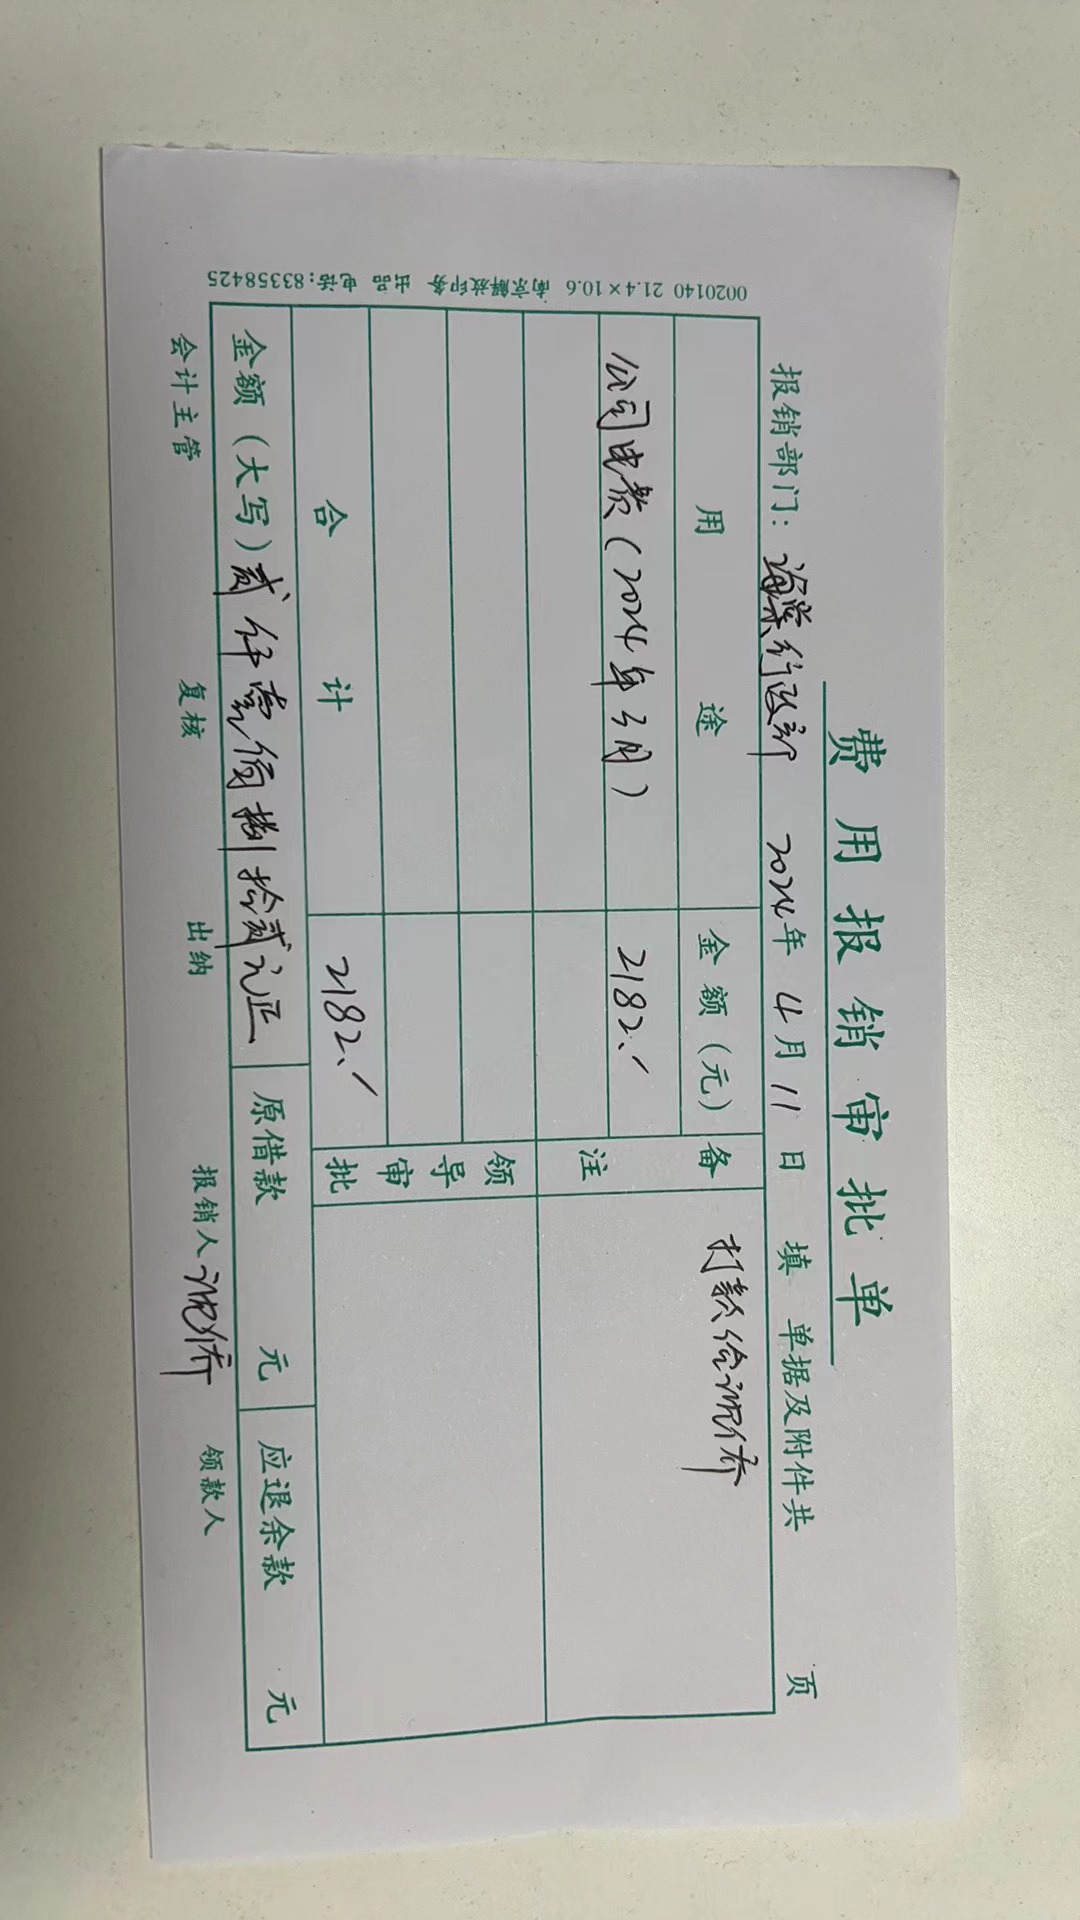 费用报销审批单
报销部门：海棠行政部 2024年4月11日 填 单据及附件共 页
用途 金额（元） 备注 打款给倪侨
公司电费（2024年3月） 2182.-
领导审批
合计 2182.-
金额（大写）贰仟壹佰捌拾贰元正 原借款 元 应退余款 元
会计主管 复核 出纳 报销人 倪侨 领款人
0020140 21.4×10.6 南京解放印务 出品 电话:83358425